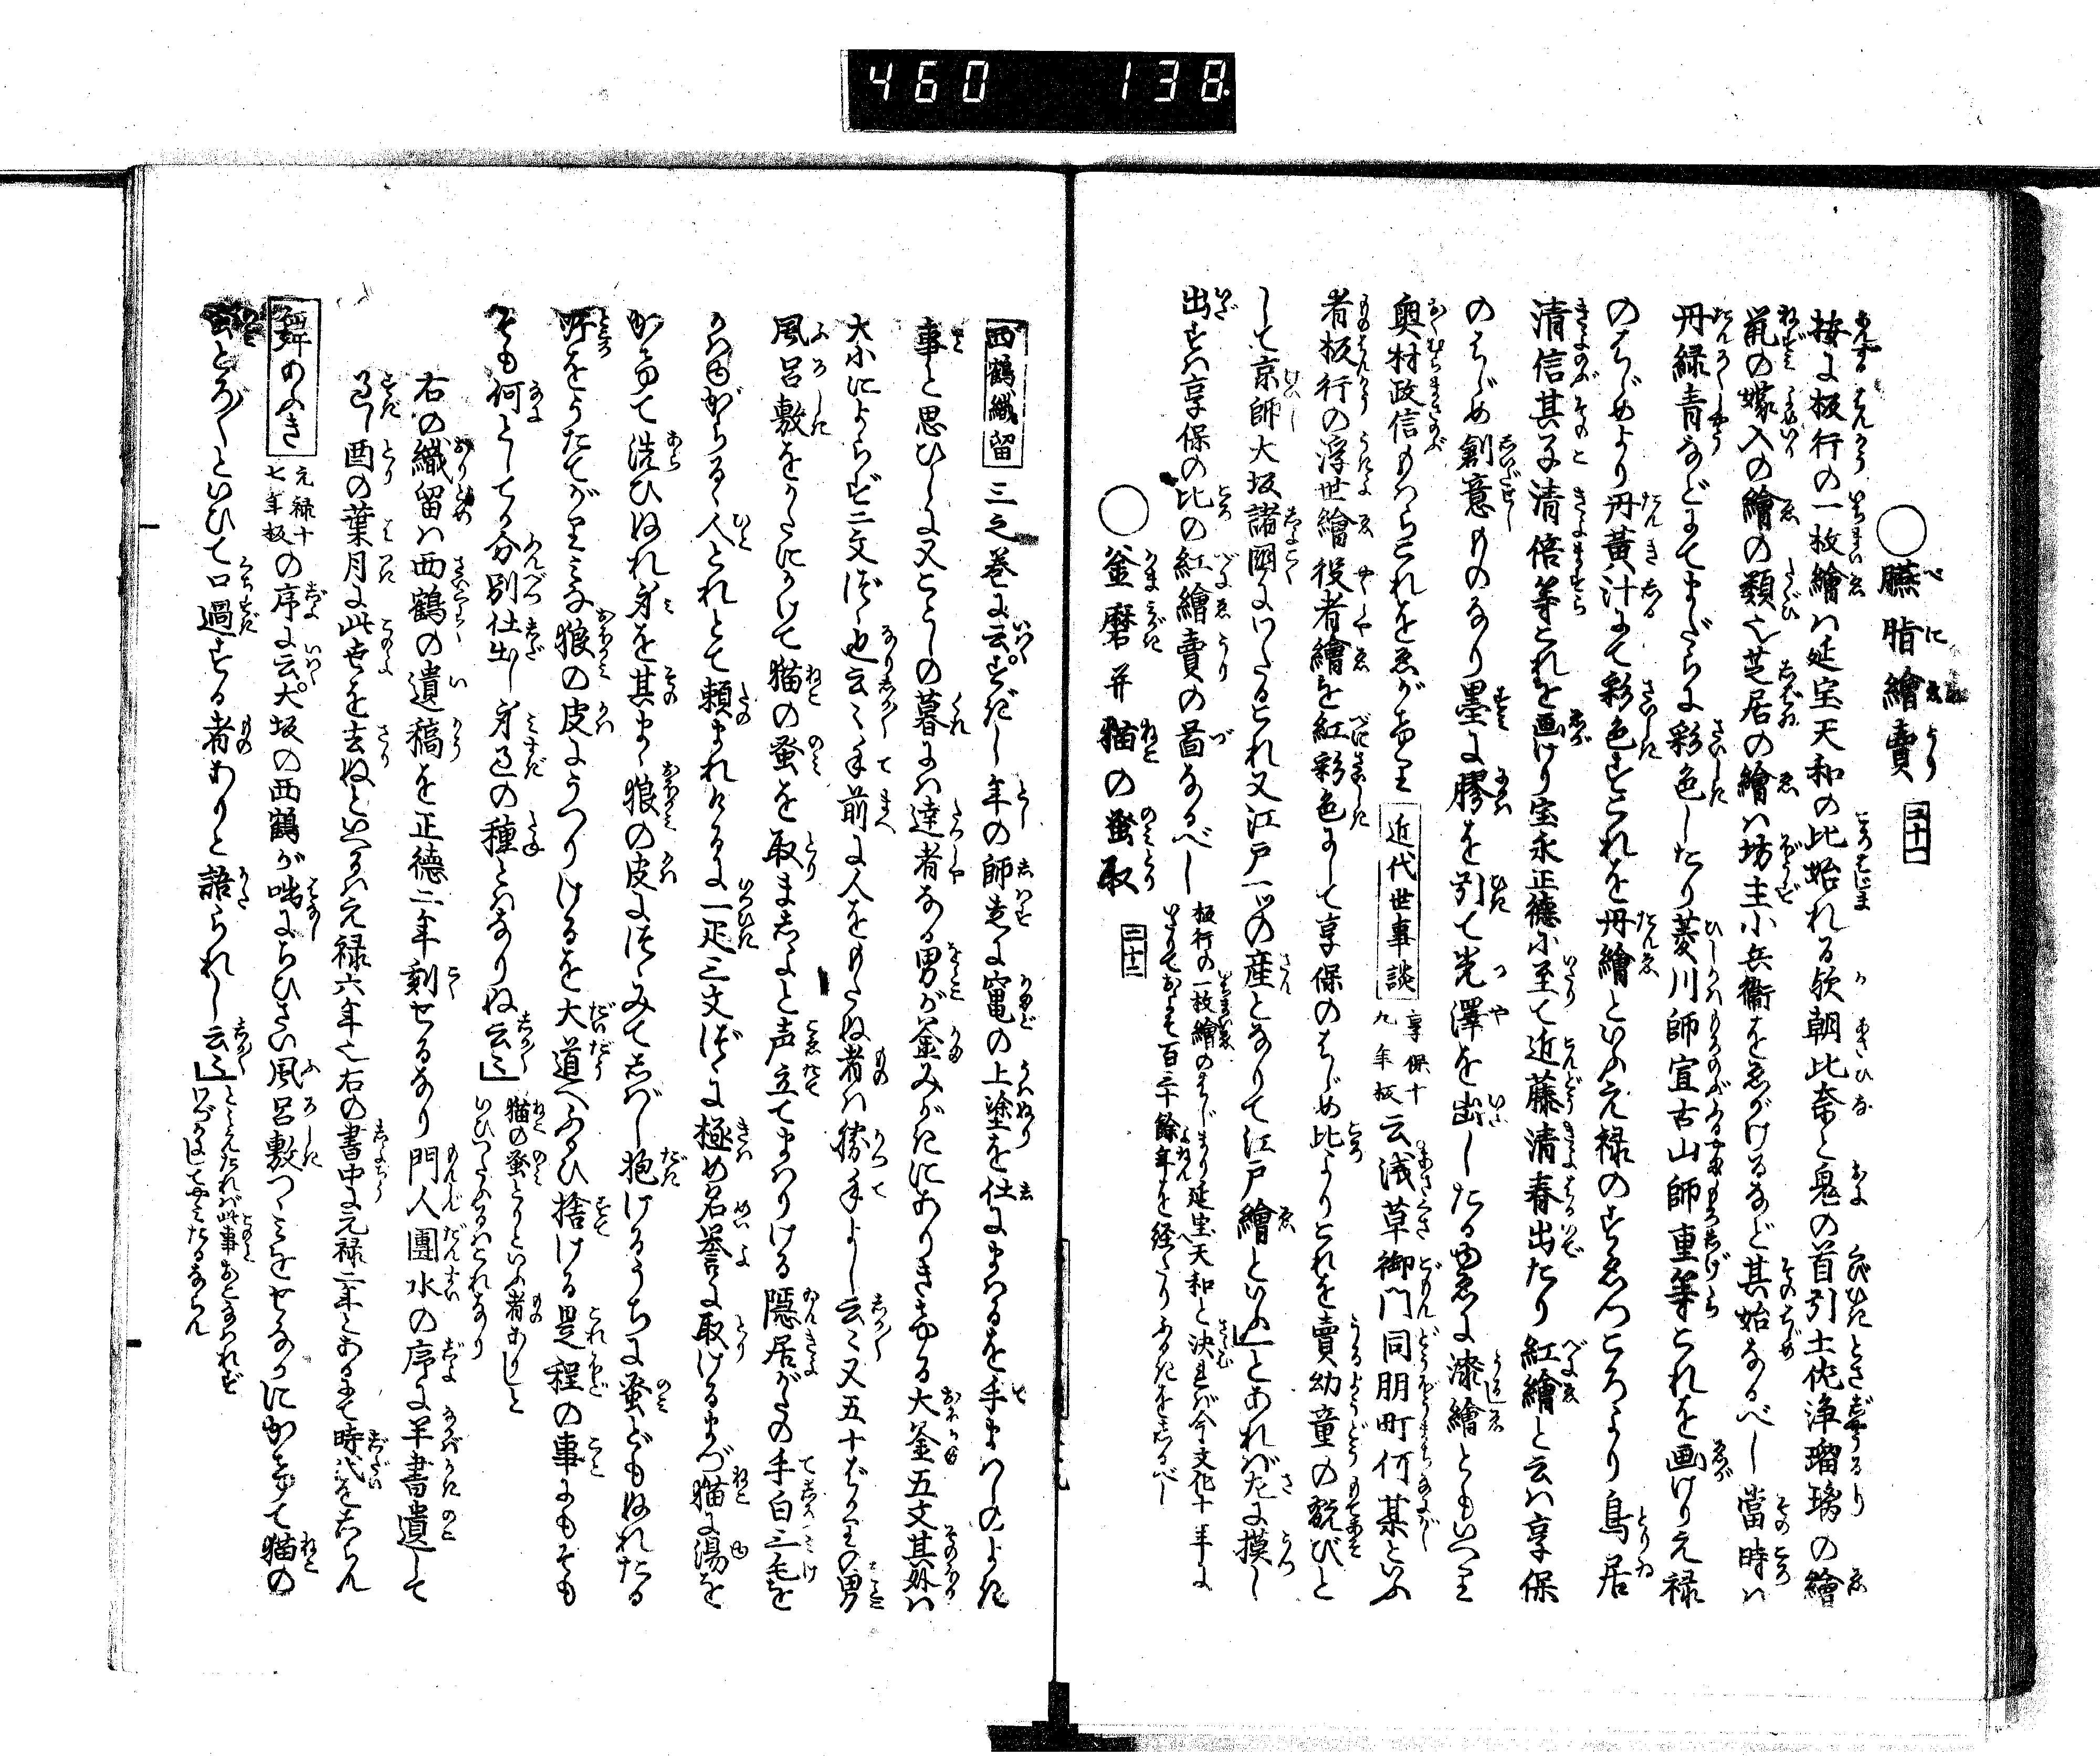 460 138
○臙脂繪賣 三十一
按に板行の一枚繪は延宝天和の比始れる歟朝比奈と鬼の首引土佐浄瑠璃の繪
鼠の嫁入の繪の類也芝居の繪は坊主小兵衞をゑがけるなど其始なるべし當時は
丹緑青などにてまだらに彩色したり菱川師宣古山師重等これを画けり元禄
のはじめより丹黃汁にて彩色すこれを丹繪といふ元禄のすゑつころより鳥居
清信其子清倍等これを画けり宝永正徳に至て近藤清春出たり紅繪と云は享保
のはじめ創意ものなり墨に膠を引て光澤を出したるゆゑに漆繪ともいへり
奥村政信もはらこれをゑがけり 近代世事談 享保十九年板 云浅草御門同朋町何某といふ
者板行の浮世繪役者繪を紅彩色にして享保のはじめ比よりこれを賣幼童の翫びと
して京師大坂諸國にわたるこれ又江戸一ツの産となりて江戸繪といふ」とあれば左に摸し
出すは享保の比の紅繪賣の圖なるべし 板行の一枚繪のはじまり延宝天和と決れば今文化十年に
いたりておよそ百三十餘年を経たりふるきをしるべし
○釜磨并猫の蚤取 三十二
西鶴織留 三之巻に云すぎし年の師走に竃の上塗を仕にまはるを手まはしのよき
事と思ひしに又ことしの暮には達者なる男が釜みがきにありきける大釜五文其外は
大小によらず二文づゝ也云〻手前に人をもたぬ者は勝手よし云〻又五十ばかりの男
風呂敷をかたにかけて猫の蚤を取ましよと声立てまはりける隠居がたの手白三毛を
かはゆがらるゝ人とれとて頼まれけるに一疋三文づゝに極め名誉に取けるまづ猫に湯を
かけて洗ひぬれ身を其まゝ狼の皮につゝみてしばし抱けるうちに蚤どもぬれたる
所をうたてがりみな狼の皮にうつりけるを大道へふるひ捨ける是程の事にもそも
そも何としてか分別仕出し身過の種とはなりぬ云〻」 猫の蚤とりといふ者ありしと
いひつたふるはこれなり
右の織留は西鶴の遺稿を正徳二年刻せるなり門人團水の序に半書遺して
過し酉の葉月に此世を去ぬといへるは元禄六年也右の書中に元禄二年とあるにて時代をしらん
嘩のふき 元禄十七年板 の序に云大坂の西鶴が咄にちひさい風呂敷つゝみをせなかにかけて猫の
蚤とろ〳〵といひて口過する者ありと語られし云〻」 とみえたれば此事おとなはれず
いづかたにてやみたるならん